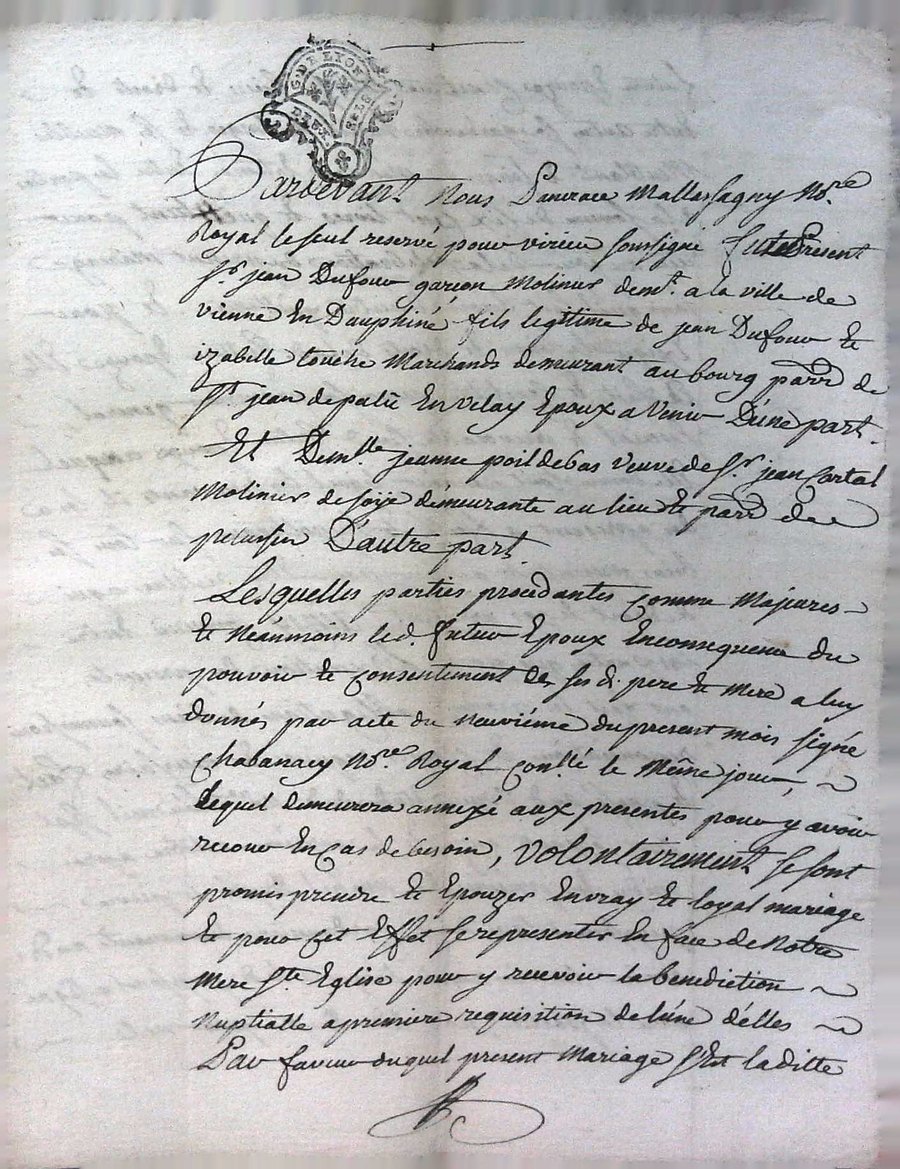 G. DE LYON
DEUX SOLS
Pardevant Nous Pancrace Mallassagny No.re
Royal le seul reservé pour virieu soussigné fut Present
Sr. jean Dufour garçon Molinier demt. a la ville de
vienne En Dauphiné, fils legitime de jean Dufour &
izabelle touche Marchands demeurant au bourg parr. de
St jean de En Velay Epoux a Venir D'une part.
Et Demlle jeanne poil de bas Veuve de Sr. jean Cortal
Molinier de soÿe demeurante au lieu & parr. de
pelussin D'autre part.
Lesquelles parties procedantes comme Majeures
& Neanmoins led. futur Epoux En consequence du
pouvoir & consentement de ses d. pere & Mere a luy
donnés par acte du Neuviéme du present mois signé
Chavanacy No.re Royal con.lé le Même jour,
Lequel demeurera annexé aux presentes pour y avoir
recour En cas de besoin, Volontairement se sont
promis prendre & Epouzer En vray & loyal mariage
& pour cet Effet se representer En face de Notre
Mere Ste. Eglise pour y recevoir la benediction
Nuptialle a premiere requisition de l'une d'elles
Par faveur duquel present Mariage s'Est laditte